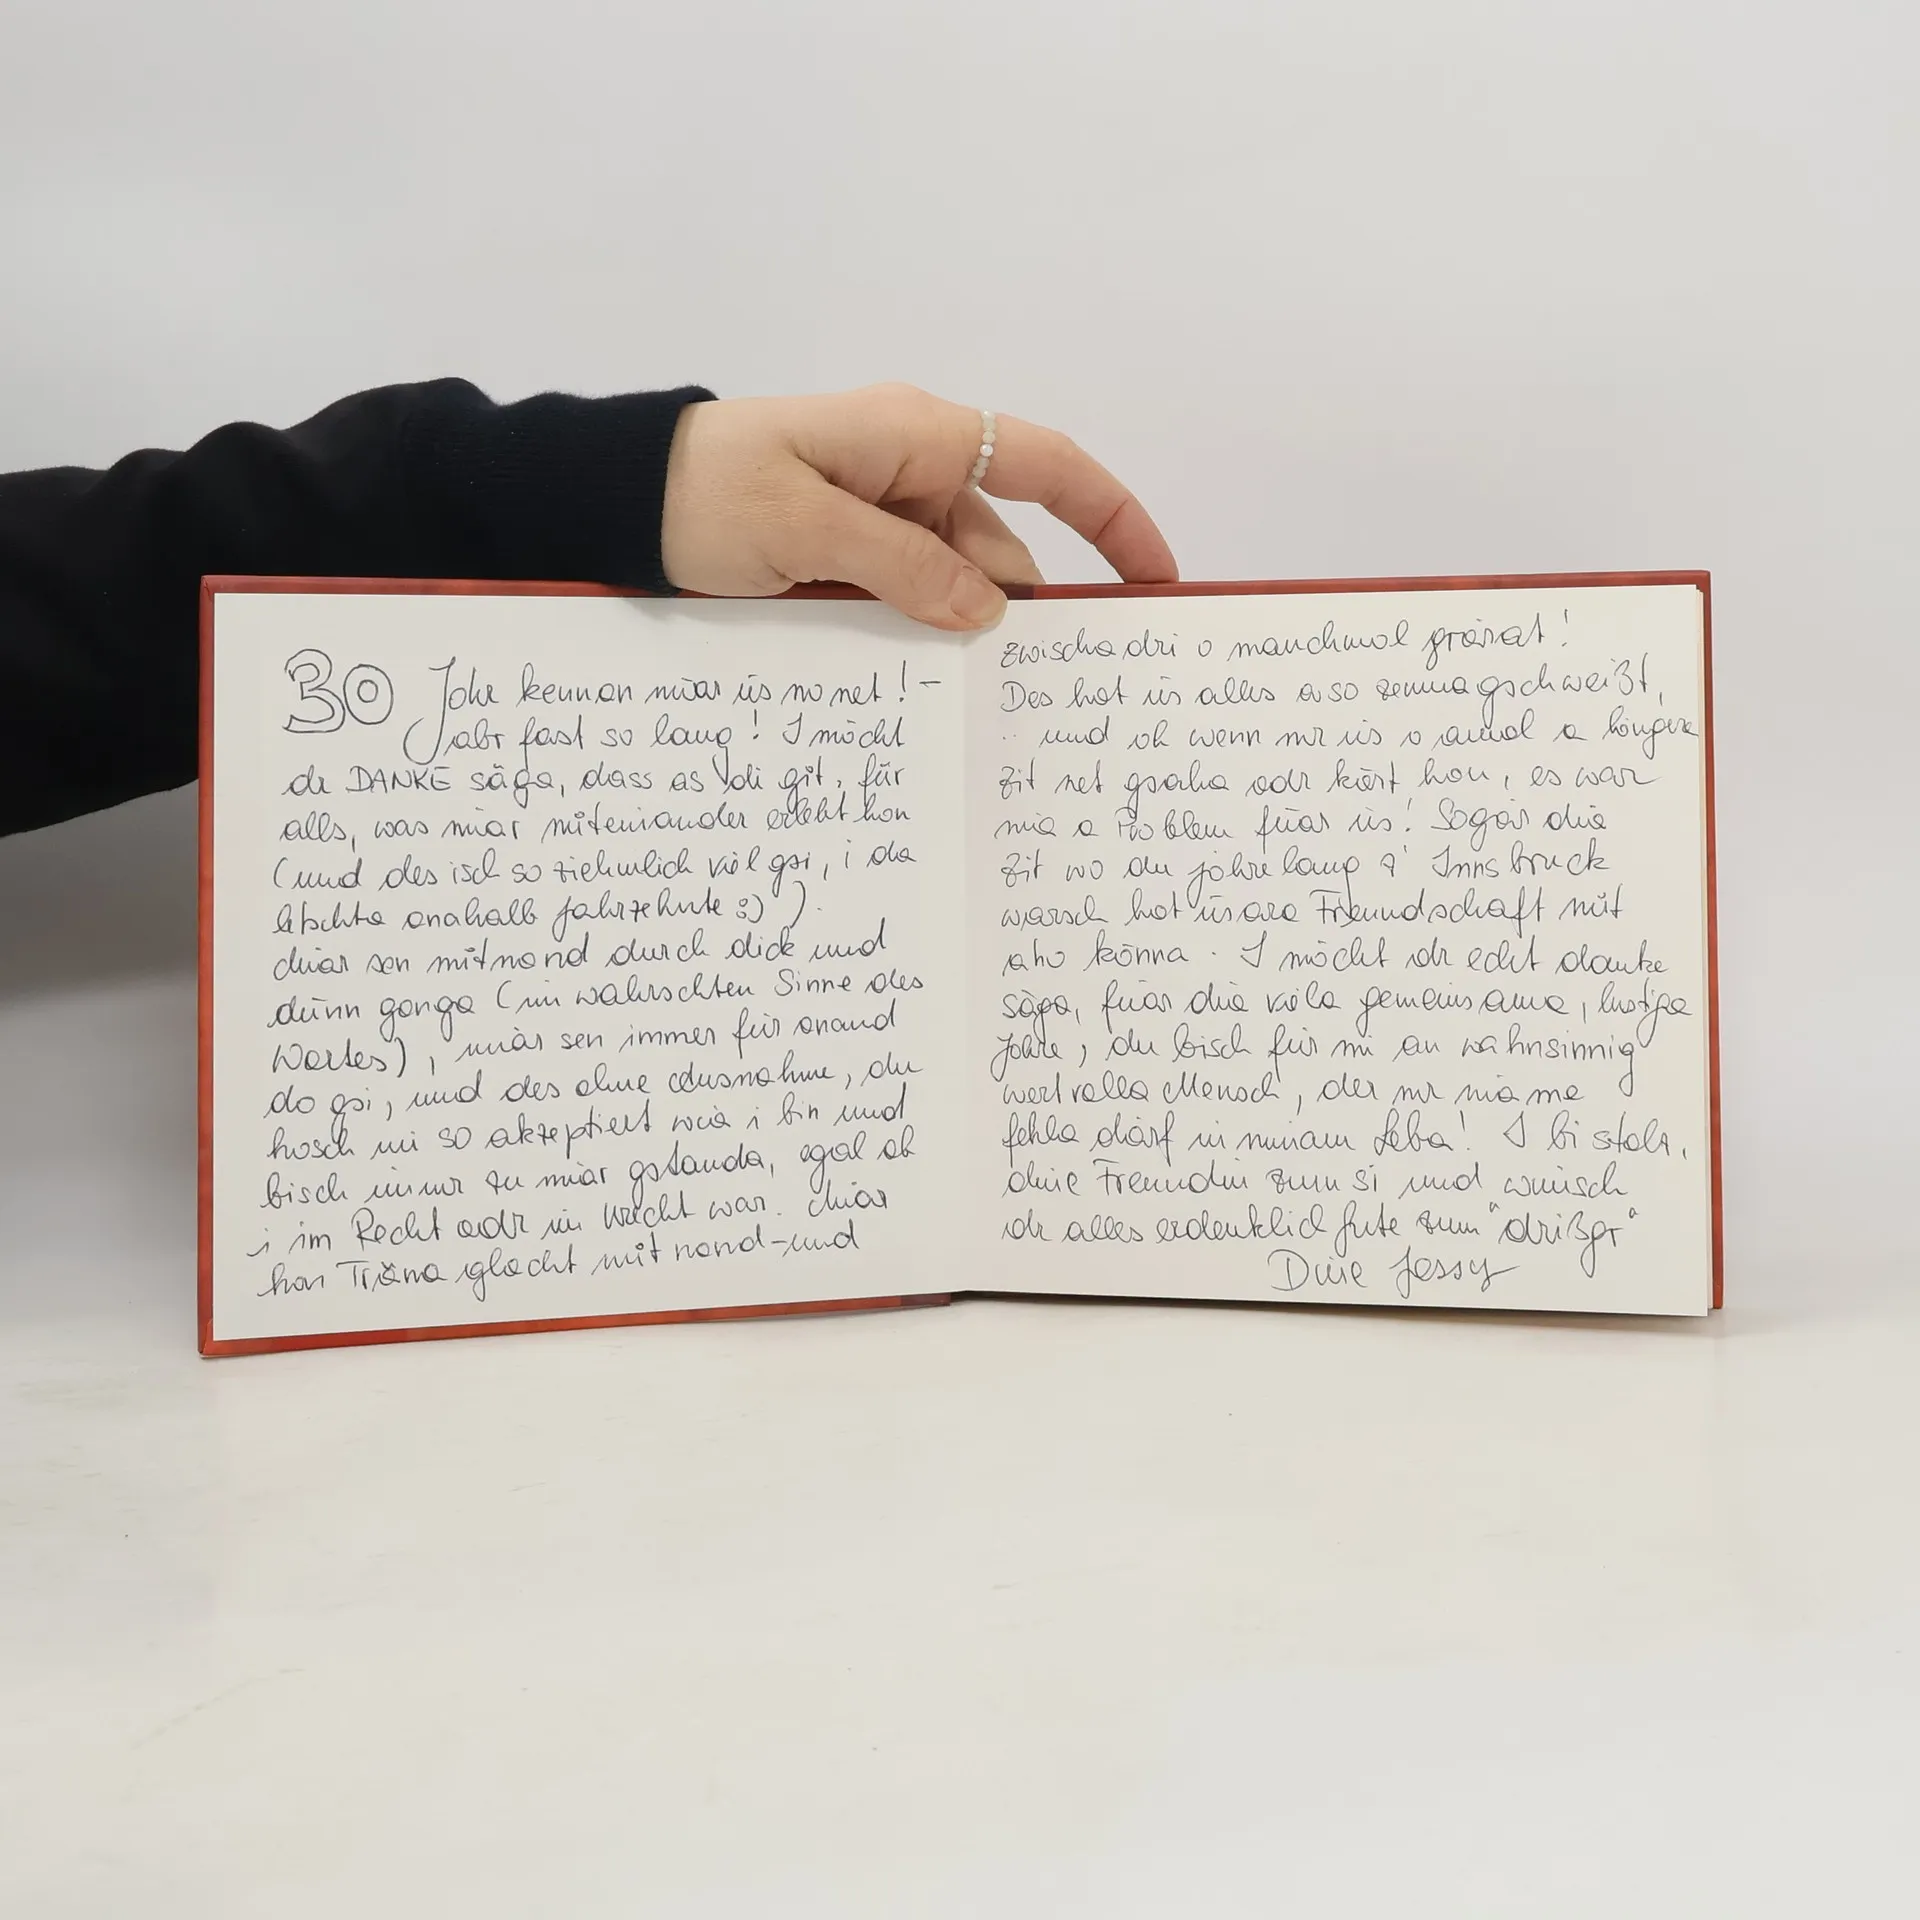 30 Johr kennen miar üs no net! -
abr fast so lang! I möcht
dr DANKE säga, dass as di git, für
alls, was miar miteinander erlebt hon
(und des isch so ziehmlich viel gsi, i da
letschta anahalb Jahrzehnte :) ).
Miar sen mitnand durch dick und
dünn ganga (im wahrschten Sinne des
Wortes), miar sen immer für anand
do gsi, und des ohne Ausnahme, du
hosch mi so akzeptiert wia i bin und
bisch immr zu miar gstanda, egal ob
i im Recht odr im Urecht war. Miar
hon Träna glacht mitnand - und
zwischadri o manchmol gräränt!
Des hot üs alles a so zemmagschweißt,
.. und ok wenn mr üs o amol a längere
Zit net gsaha odr kört hon, es war
nia a Problem füar üs! Sogar dia
Zit wo du johrelang z' Innsbruck
warsch hot üsara Freundschaft nüt
aho könna. I möcht dr echt danke
säga, füar dia viela gemeinsama, lustiga
Johre, du bisch für mi an wahnsinnig
wertvolla Mensch, der mr nia me
fehla därf in minam Leba! I bi stolz,
dine Freundin zum si und wünsch
dr alles erdenklich Gute zum "drißgr"
Dine Jessy